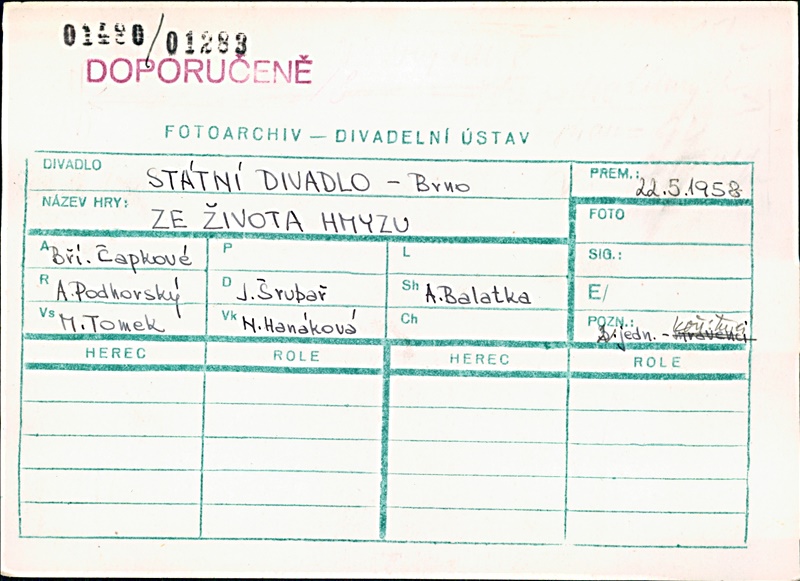 01480/01283
DOPORUČENĚ
FOTOARCHIV — DIVADELNÍ ÚSTAV
DIVADLO STÁTNÍ DIVADLO – Brno
PREM.: 22.5.1958
NÁZEV HRY: ZE ŽIVOTA HMYZU
FOTO
A Bří. Čapkové P L
SIG.:
R A. Podhorský D J. Šrubař Sh A. Balatka
E/
Vs M. Tomek Vk N. Hanáková Ch
POZN.: jedn. - mravenci
HEREC ROLE HEREC ROLE